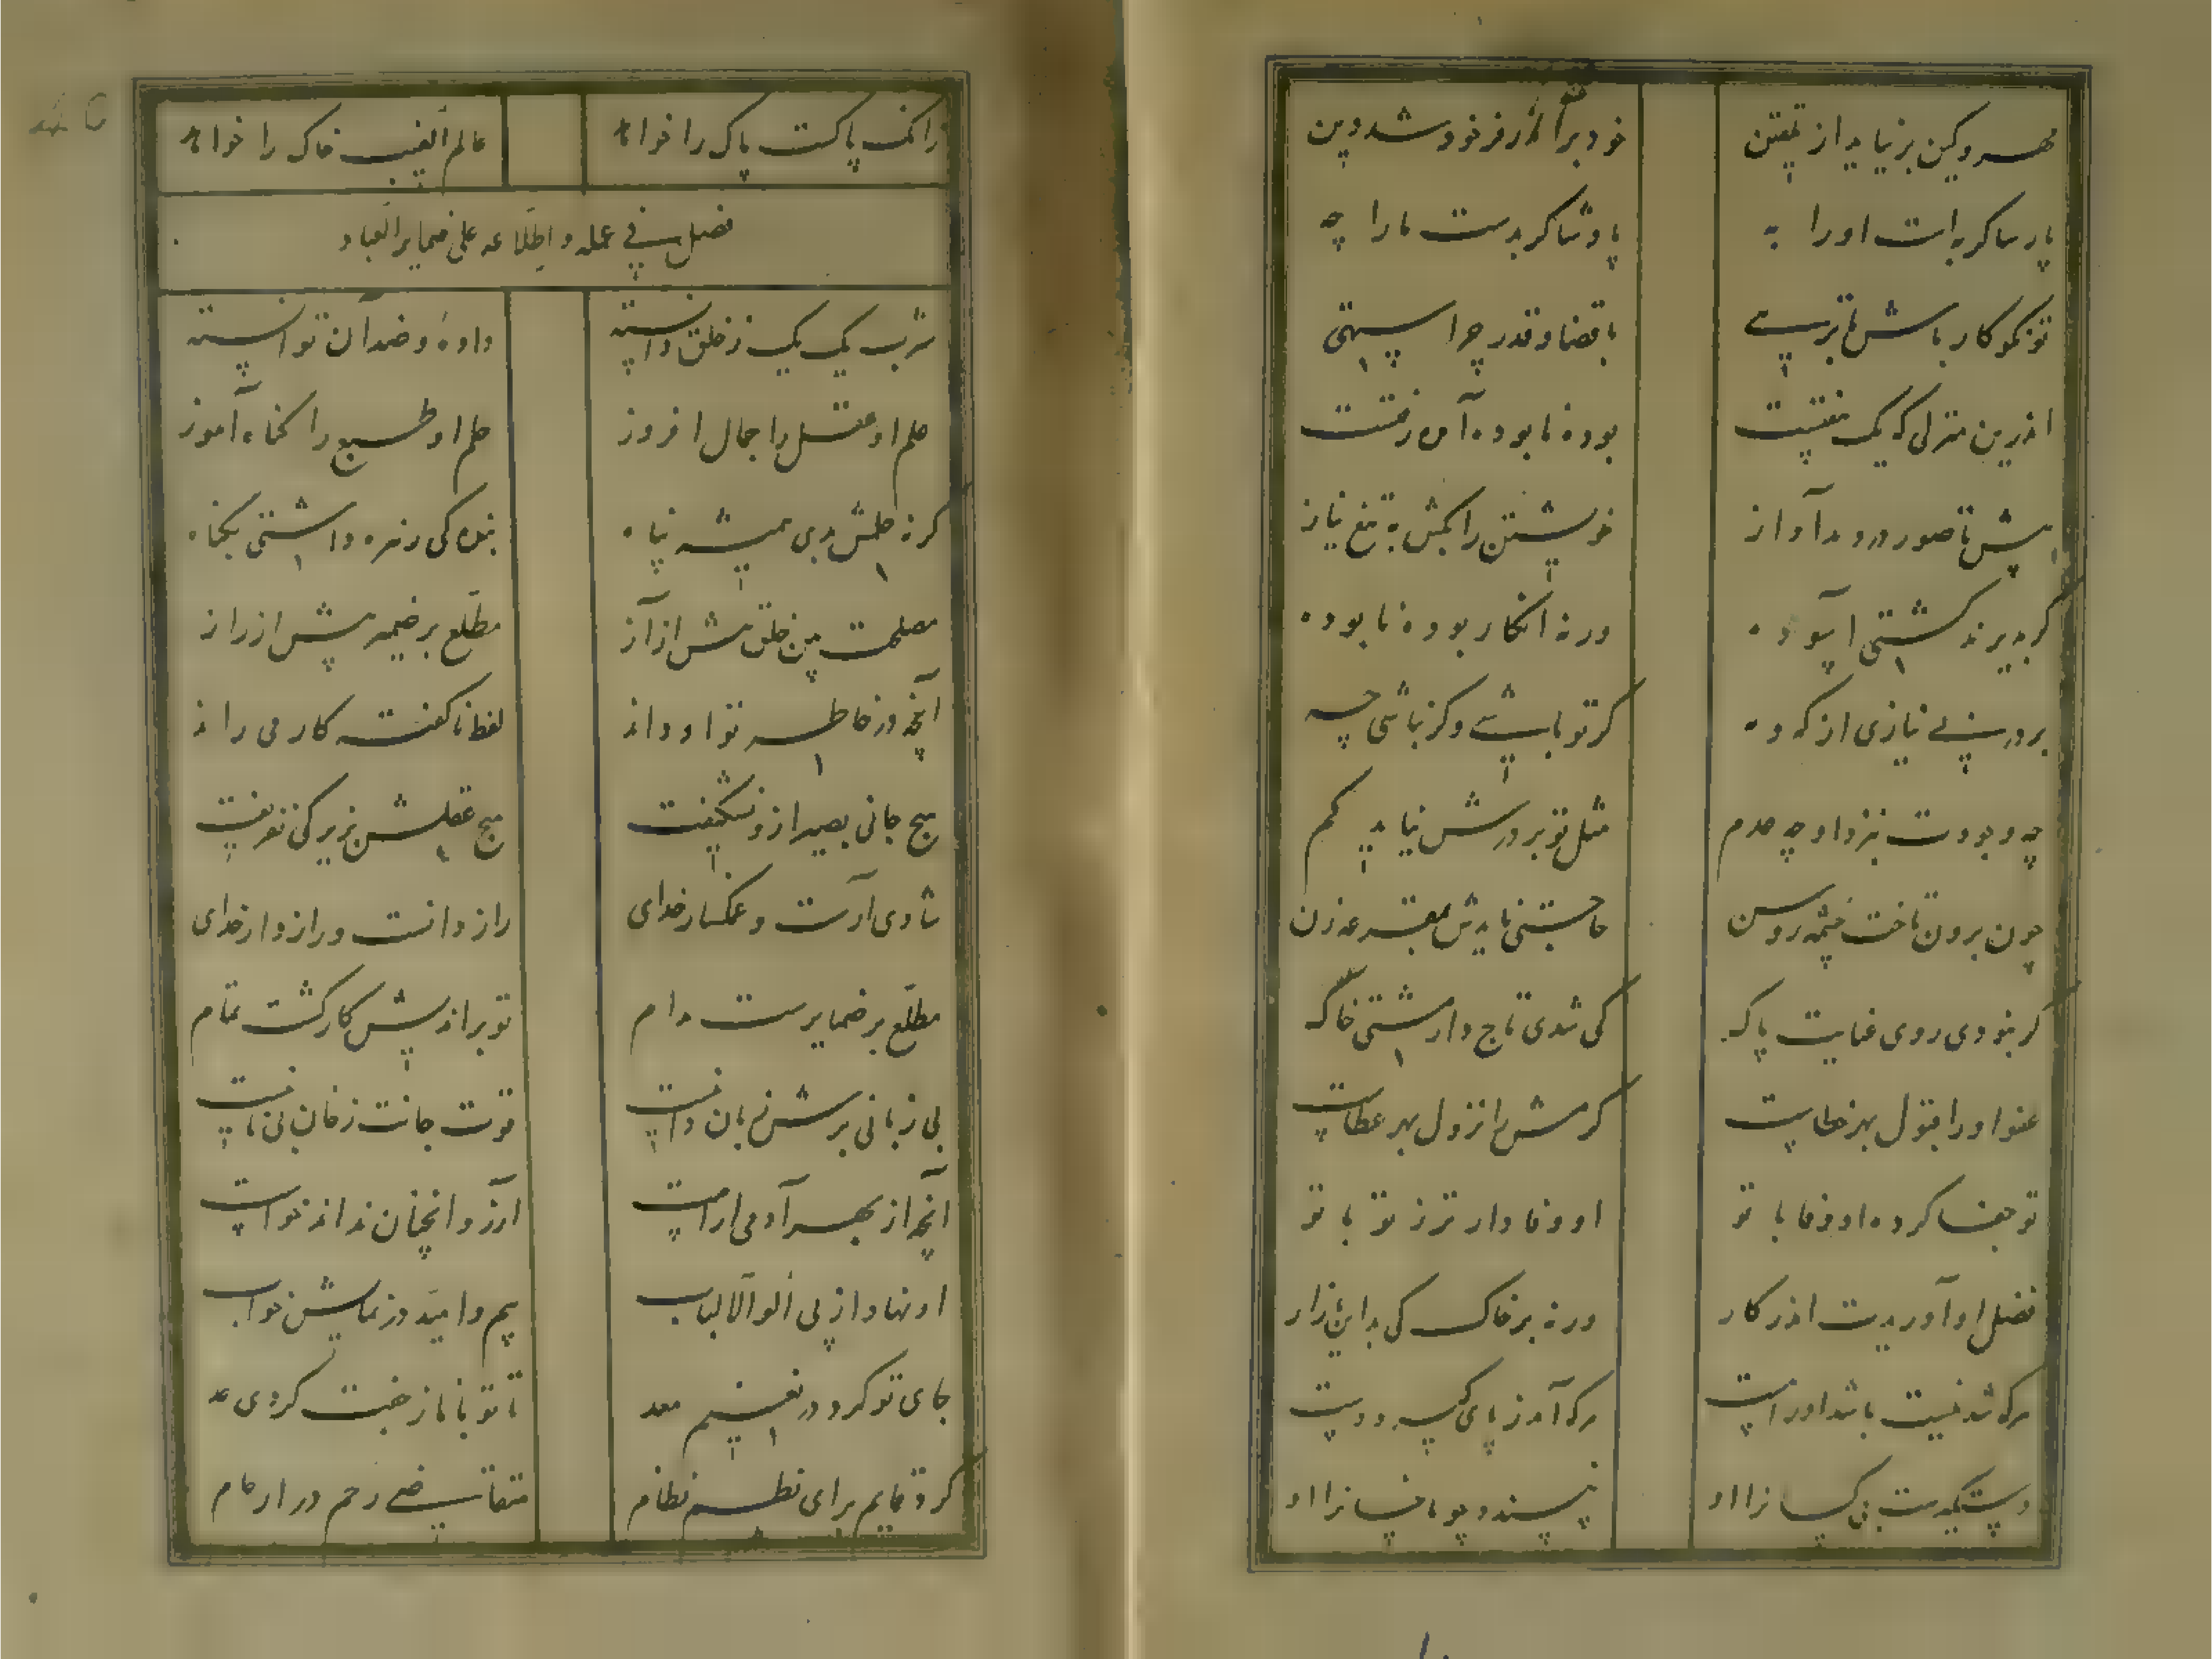 مهر و کین برنیاید از تمتن خود بر الله از فر خود شد دین
پارسا گر بدست او را به پادشا گر بدست ما را چه
تو نکو کار باش تا برسی با قضا و قدر چرا ستهی
اندرین منزلی که یک هفتست بوده نابوده آمده رفتست
پیش تا صور در دمد آواز خویشتن را بکش به تیغ نیاز
گر پذیرند گشتی آسوده ورنه انگار بوده نابوده
بر در بی نیازی از که و مه گر تو باشی و گر نباشی چه
چه وجودت نزد او چه عدم مثل تو بر درش نیاید کم
چون برون تاخت چشمه روشن حاجتی نایدش بمقرعه زن
گر نبودی روی عنایت پاک کی شدی تاج دار مشتی خاک
عفو او را قبول بهر خطاست کرمش را نزول بهر عطاست
تو جفا کرده او وفا با تو او وفادارتر ز تو با تو
فضل او آوریدت اندر کار ورنه بر خاک کی بدین زار
هرکه شد نیست باشد او را هست هرکه آمد ز پای گیرد دست
دستگیرست بی کسانرا او نپسندد چو ما خسانرا او
زانک پاکست پاک را خواهد عالم الغیب خاک را خواهد
فصل فی علمه و اطلاعه علی ضمایر العباد
شرب یک یک ز خلق دانسته داده و ضد آن توانسته
علم او عقل را جمال افروز حلم او طبع را گناه آموز
گرنه حلمش بدی همیشه پناه بنده کی زهره داشتی بگناه
مصلحت بین خلق پیش از آز مطلع بر ضمیر پیش از راز
آنچه در خاطر تو او داند لفظ ناگفته کار می راند
هیچ جانی بصیر ازو نشکیفت هیچ عقلش بزیرکی نفریفت
شادی آرست و غمگسار خدای راز دانست و رازدار خدای
مطلع بر ضمایرست مدام تو بر اندیش کار گشت تمام
بی زبانی برش زبان دانیست قوت جانت ز خوان بی نانیست
آنچه از بهر آدمی آراست آرزو آنچنان نداند خواست
او نهاد از پی الوالالباب بیم و امید در نمایش خواب
جای تو کرد در نعیم معد تا تو با ناز جفت کردی عد
کرد قایم برای نظم نظام متقاضی رحم در ارحام